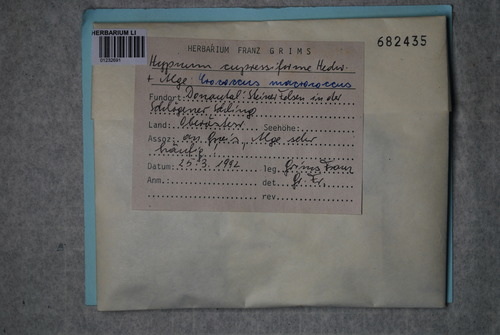 HERBARIUM LI
01232691
682435
HERBARIUM FRANZ GRIMS
Hypnum cupressiforme Hedw.
+ Alge: Crococcus macrococcus
Fundort: Donautal: Steiner Felsen in der
Schlögener Schling
Land: Oberösterr. Seehöhe:
Assoz: an Gneis, Alge sehr
häufig
Datum: 25.3.1992 leg. Grims Franz
Anm.: det. Gr. Fr.
rev.